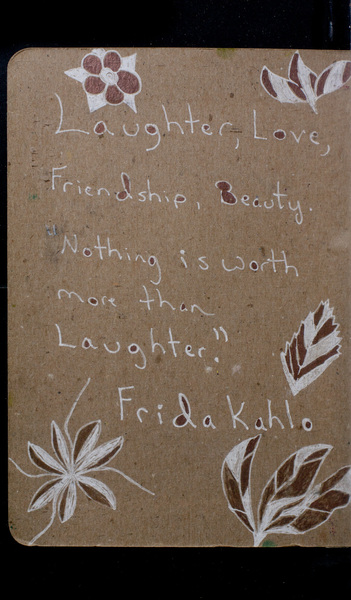 Laughter, Love,
Friendship, Beauty.
"Nothing is worth
more than
Laughter."
Frida Kahlo